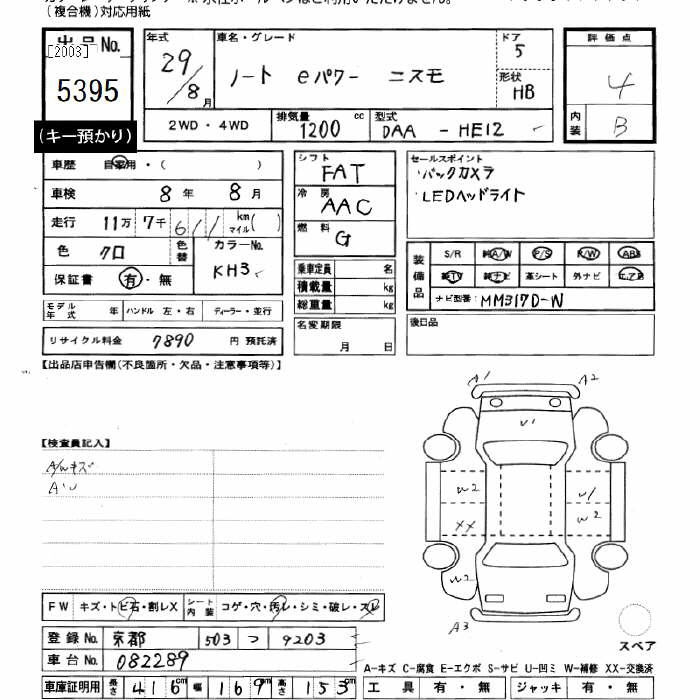 (複合機)対応用紙
出品No.
[2003]
5395
(キー預かり)
年式 29/8月
車名・グレード ノート eパワー ニスモ
ドア 5
形状 HB
評価点 4
内装 B
2WD・4WD
排気量 1200 cc
型式 DAA - HE12
車歴 自家用・( )
車検 8年 8月
走行 11万 7千 611 km マイル( )
色 クロ 色替
カラーNo. KH3
保証書 有・無
モデル年式 年 ハンドル 左・右 ディーラー・並行
リサイクル料金 7890 円 預託済
シフト FAT
冷房 AAC
燃料 G
乗車定員 名
積載量 kg
総重量 kg
名変期限 月 日
セールスポイント
・バックカメラ
・LEDヘッドライト
装備品
S/R 純A/W P/S R/W ABS
純TV 純ナビ 革シート 外ナビ エアB
ナビ型番: MM317D-W
後日品
【出品店申告欄(不良箇所・欠品・注意事項等)】
【検査員記入】
A/Wキズ
A・U
A1 A2
U1
W2 U1
XX W2
W2
A3
スペア
FW キズ・トビ石・割レX
シート内装 コゲ・穴・汚レ・シミ・破レ・スレ
登録No. 京都 503 つ 9203
車台No. 082289
車庫証明用 長さ 416cm 幅 169cm 高さ 153cm
A-キズ C-腐食 E-エクボ S-サビ U-凹ミ W-補修 XX-交換済
工具 有・無 ジャッキ 有・無